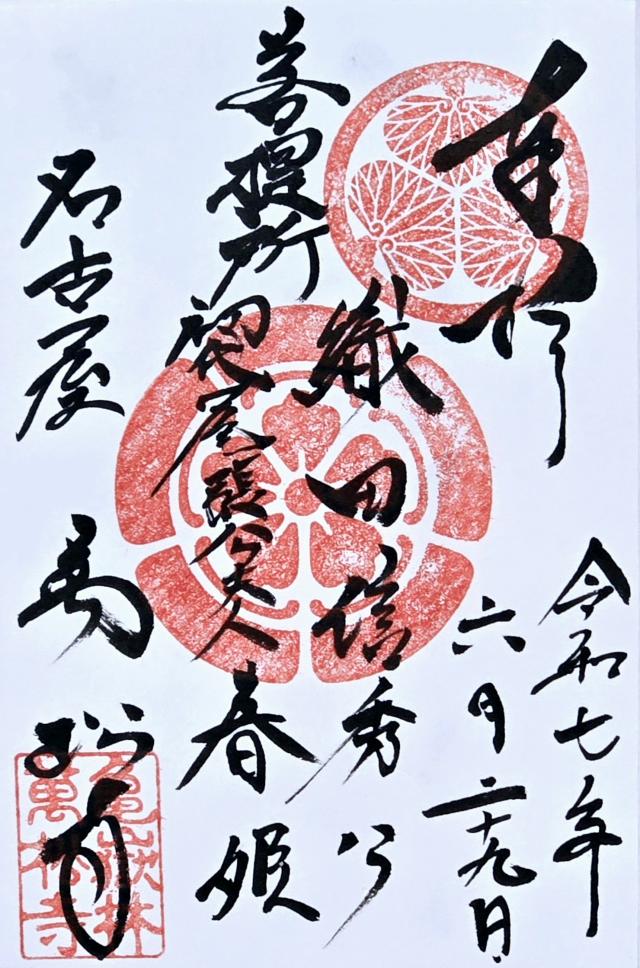 奉拝
令和七年
六月二十九日
織田信秀公
菩提所
初代尾張公夫人
春姫
名古屋
萬松寺
亀嶽林
萬松寺